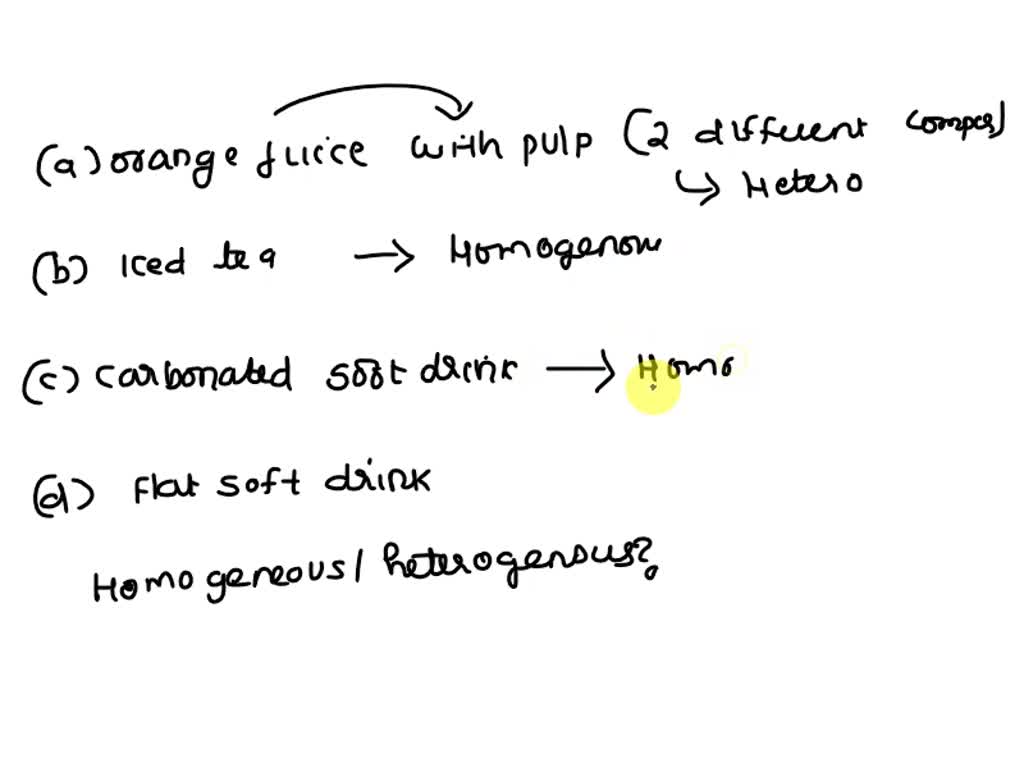 (a) orange juice with pulp (2 different
↳ Hetero
(b) Iced tea → Homogenous
(c) carbonated soft drink → Homo
(d) Flat soft drink
Homogeneous/heterogensus?